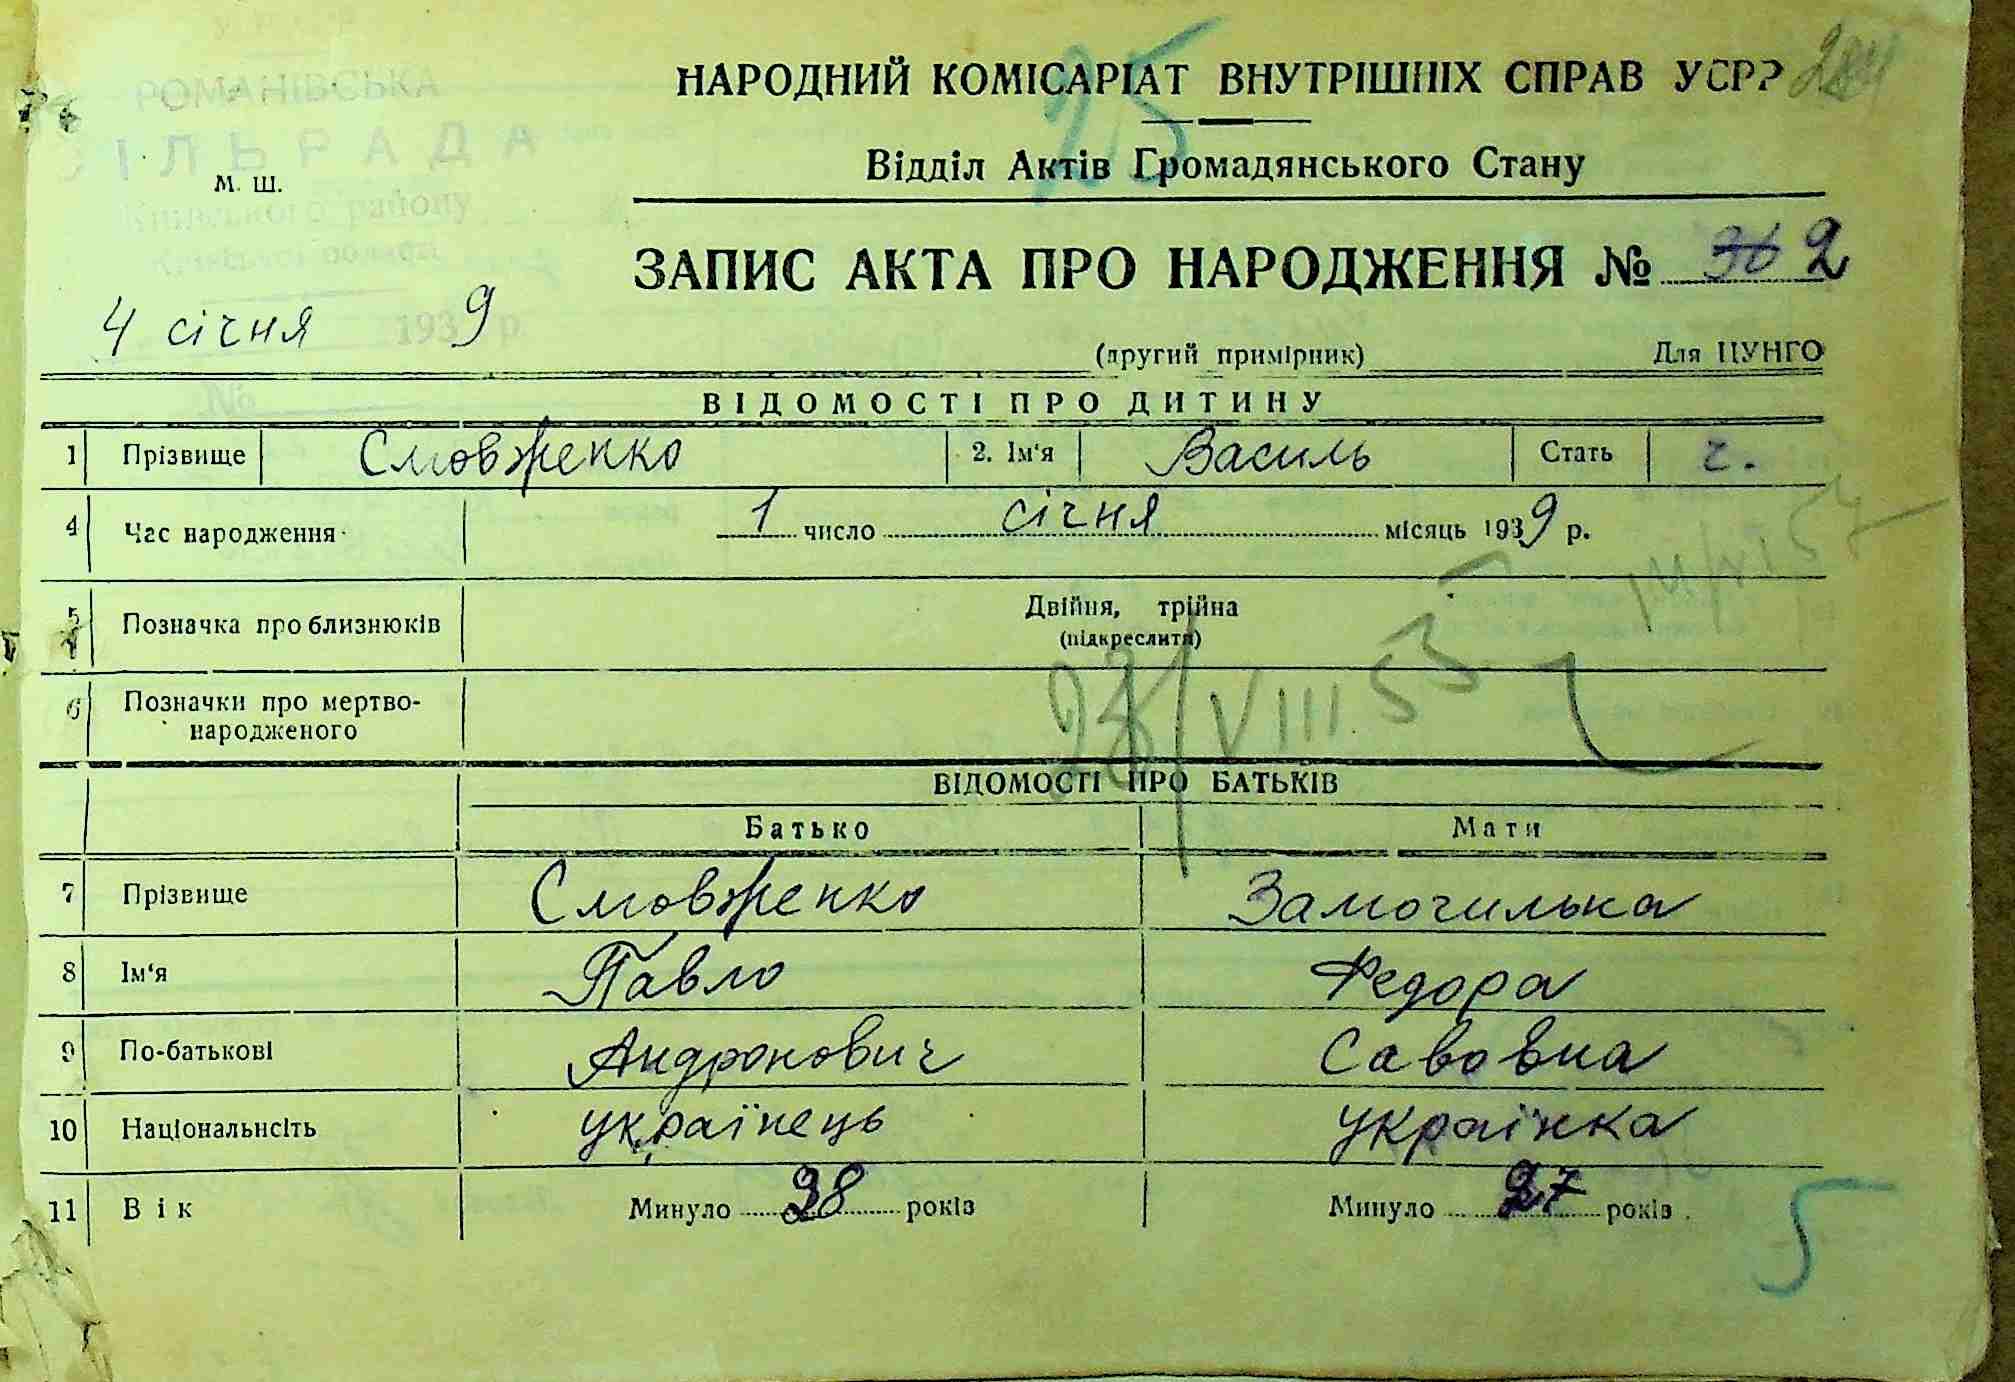 РОМАНІВСЬКА
СІЛЬРАДА
району
25
284
НАРОДНИЙ КОМІСАРІАТ ВНУТРІШНІХ СПРАВ УСРР
Відділ Актів Громадянського Стану
м. ш.
ЗАПИС АКТА ПРО НАРОДЖЕННЯ № 36 2
4 січня 1939 р.
(другий примірник) Для ЦУНГО
ВІДОМОСТІ ПРО ДИТИНУ
1 Прізвище Смовженко 2. Ім'я Василь Стать ч.
4 Час народження 1 число січня місяць 1939 р.
5 Позначка про близнюків Двійня, трійна
(підкреслити)
6 Позначки про мертво-
народженого
28/VIII 55
ВІДОМОСТІ ПРО БАТЬКІВ
Батько Мати
7 Прізвище Смовженко Замочилька
8 Ім'я Павло Федора
9 По-батькові Андронович Савовна
10 Національнсіть українець українка
11 Вік Минуло 38 років Минуло 27 років
5